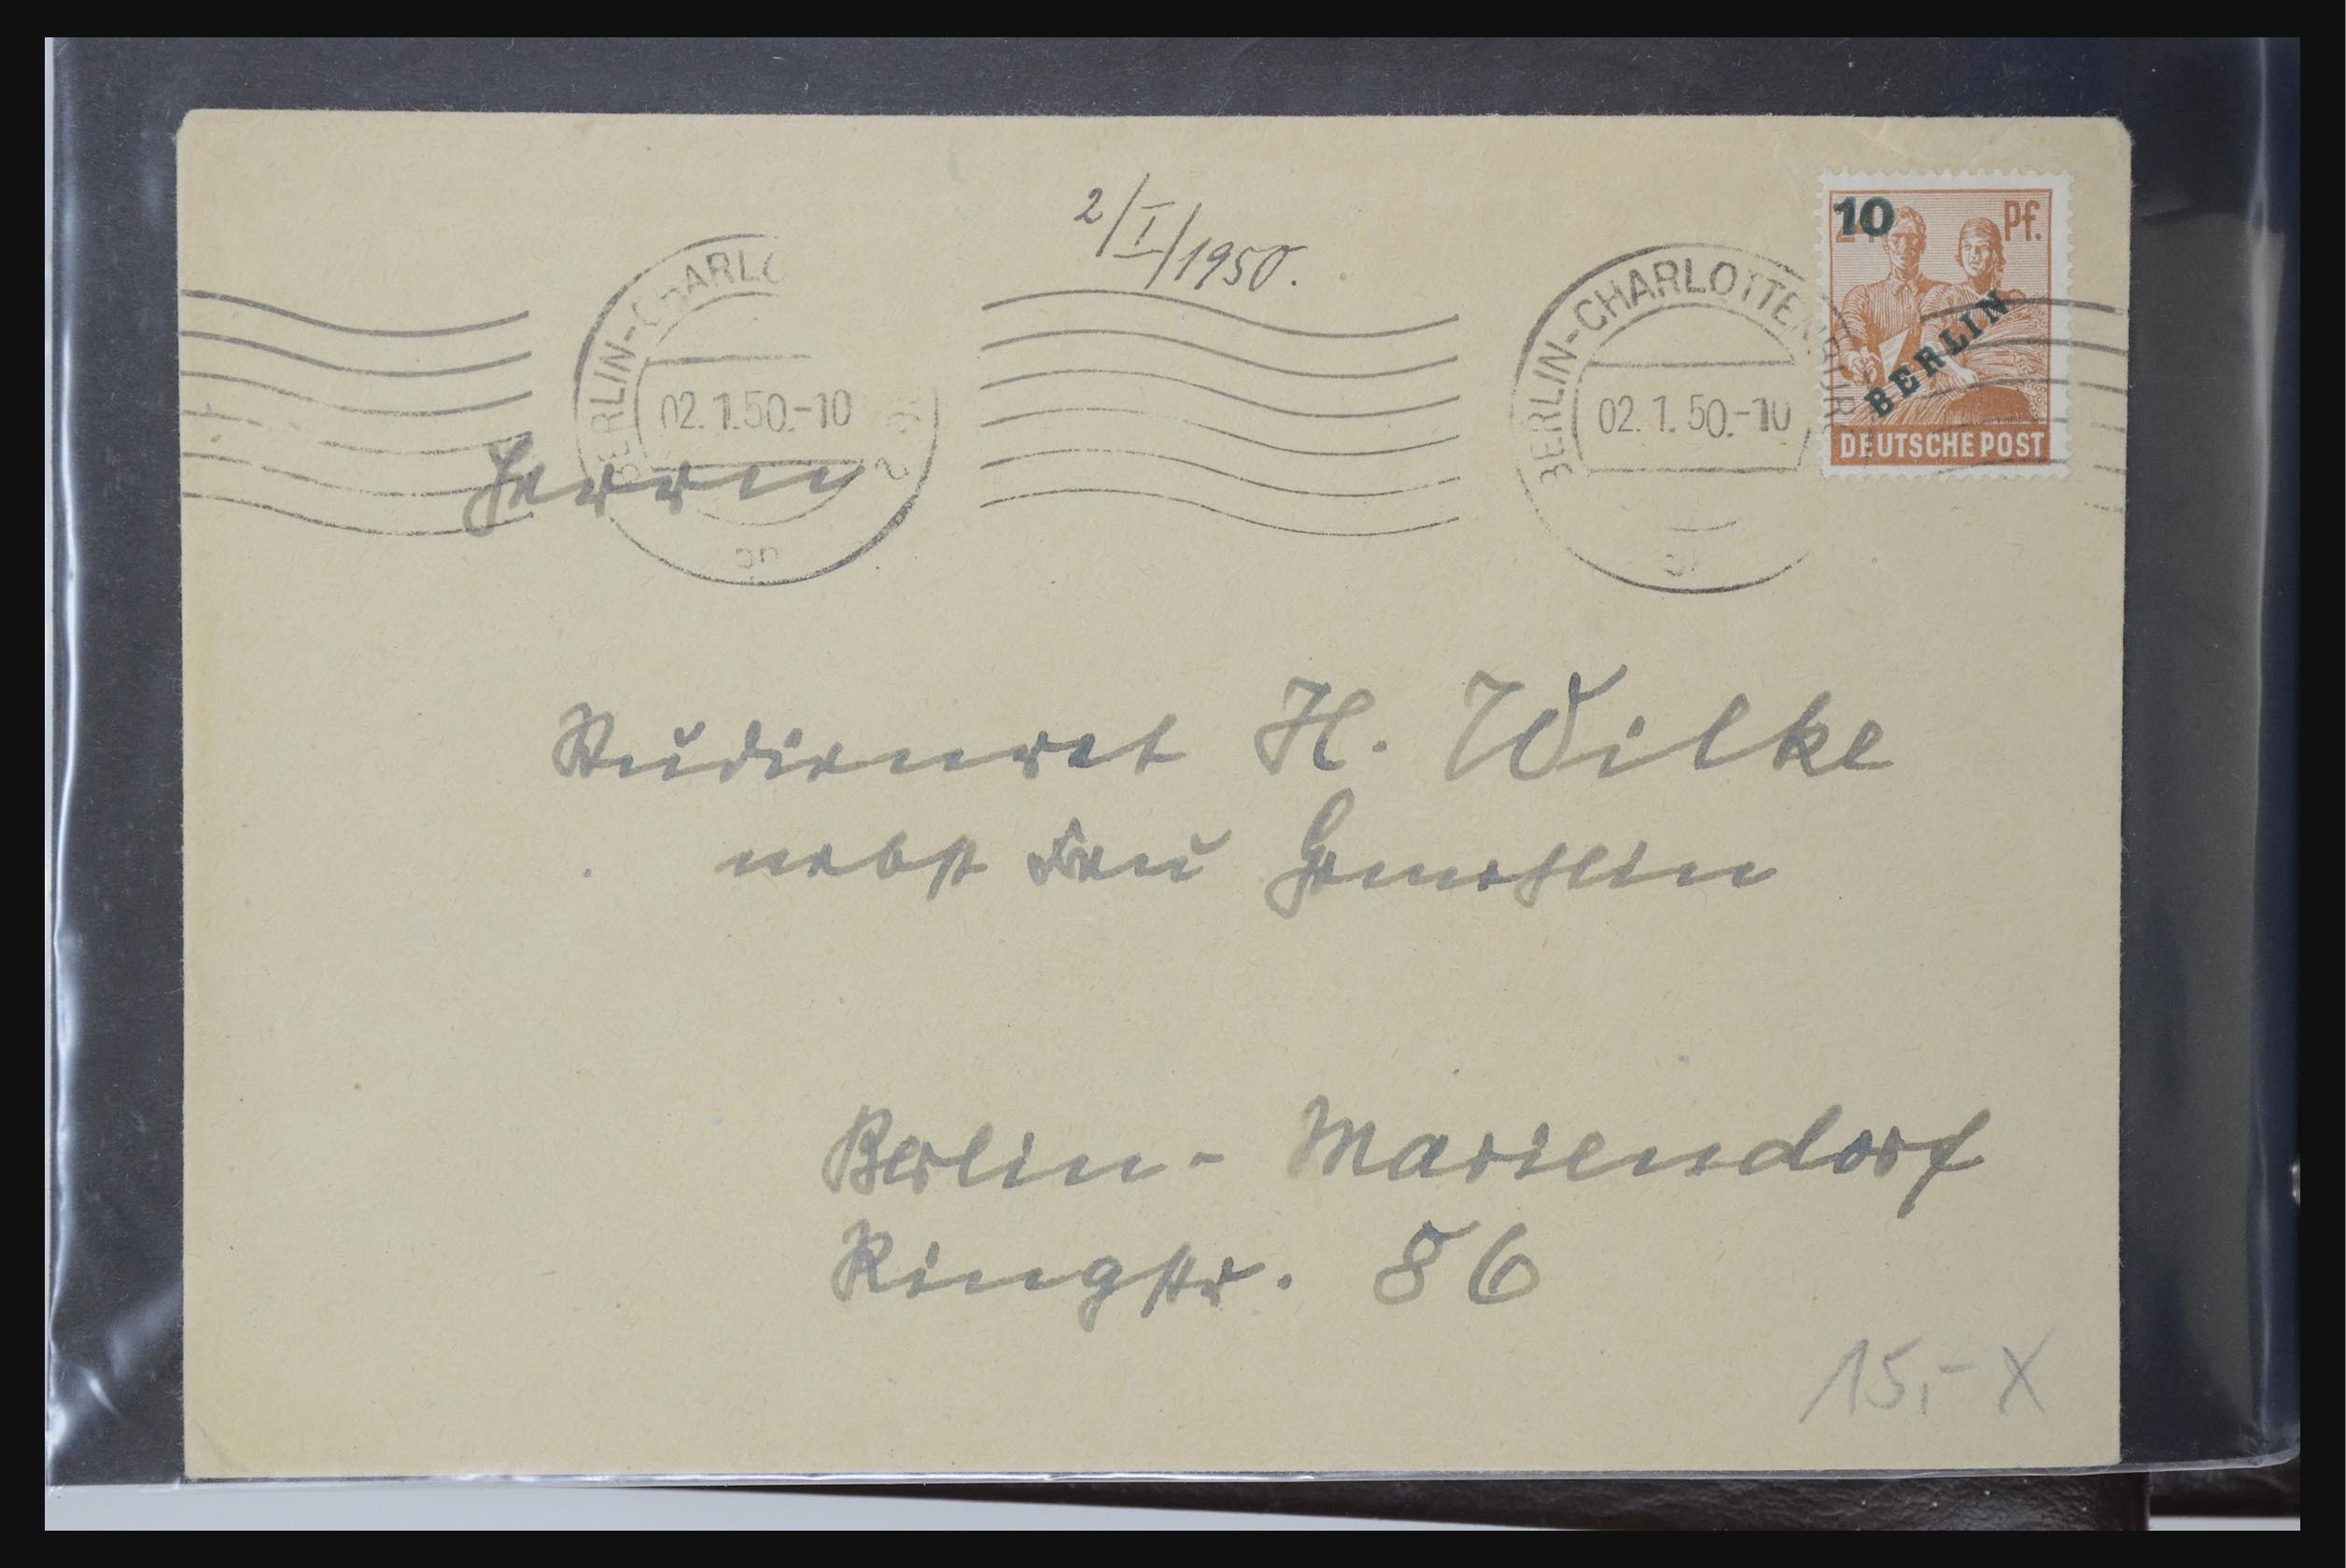 2/I/1950.
10
24 Pf.
BERLIN
DEUTSCHE POST
BERLIN-CHARLO
02.1.50.-10
BERLIN-CHARLOTTENBURG
02.1.50.-10
Herrn
Studienrat H. Wilke
nebst Frau Gemahlin
Berlin-Mariendorf
Ringstr. 86
15,- X